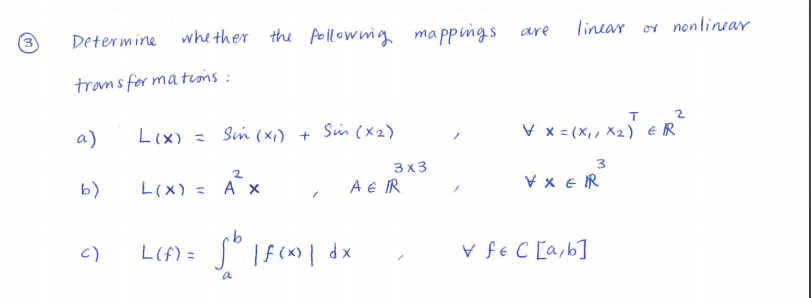 ③ Determine whether the following mappings are linear or nonlinear
transformations :
a) L(x) = Sin (x₁) + Sin (x₂) , ∀ x = (x₁, x₂)ᵀ ∈ ℝ²
b) L(x) = A² x , A ∈ ℝ³ˣ³ , ∀ x ∈ ℝ³
c) L(f) = ∫ₐᵇ |f(x)| dx , ∀ f ∈ C [a,b]